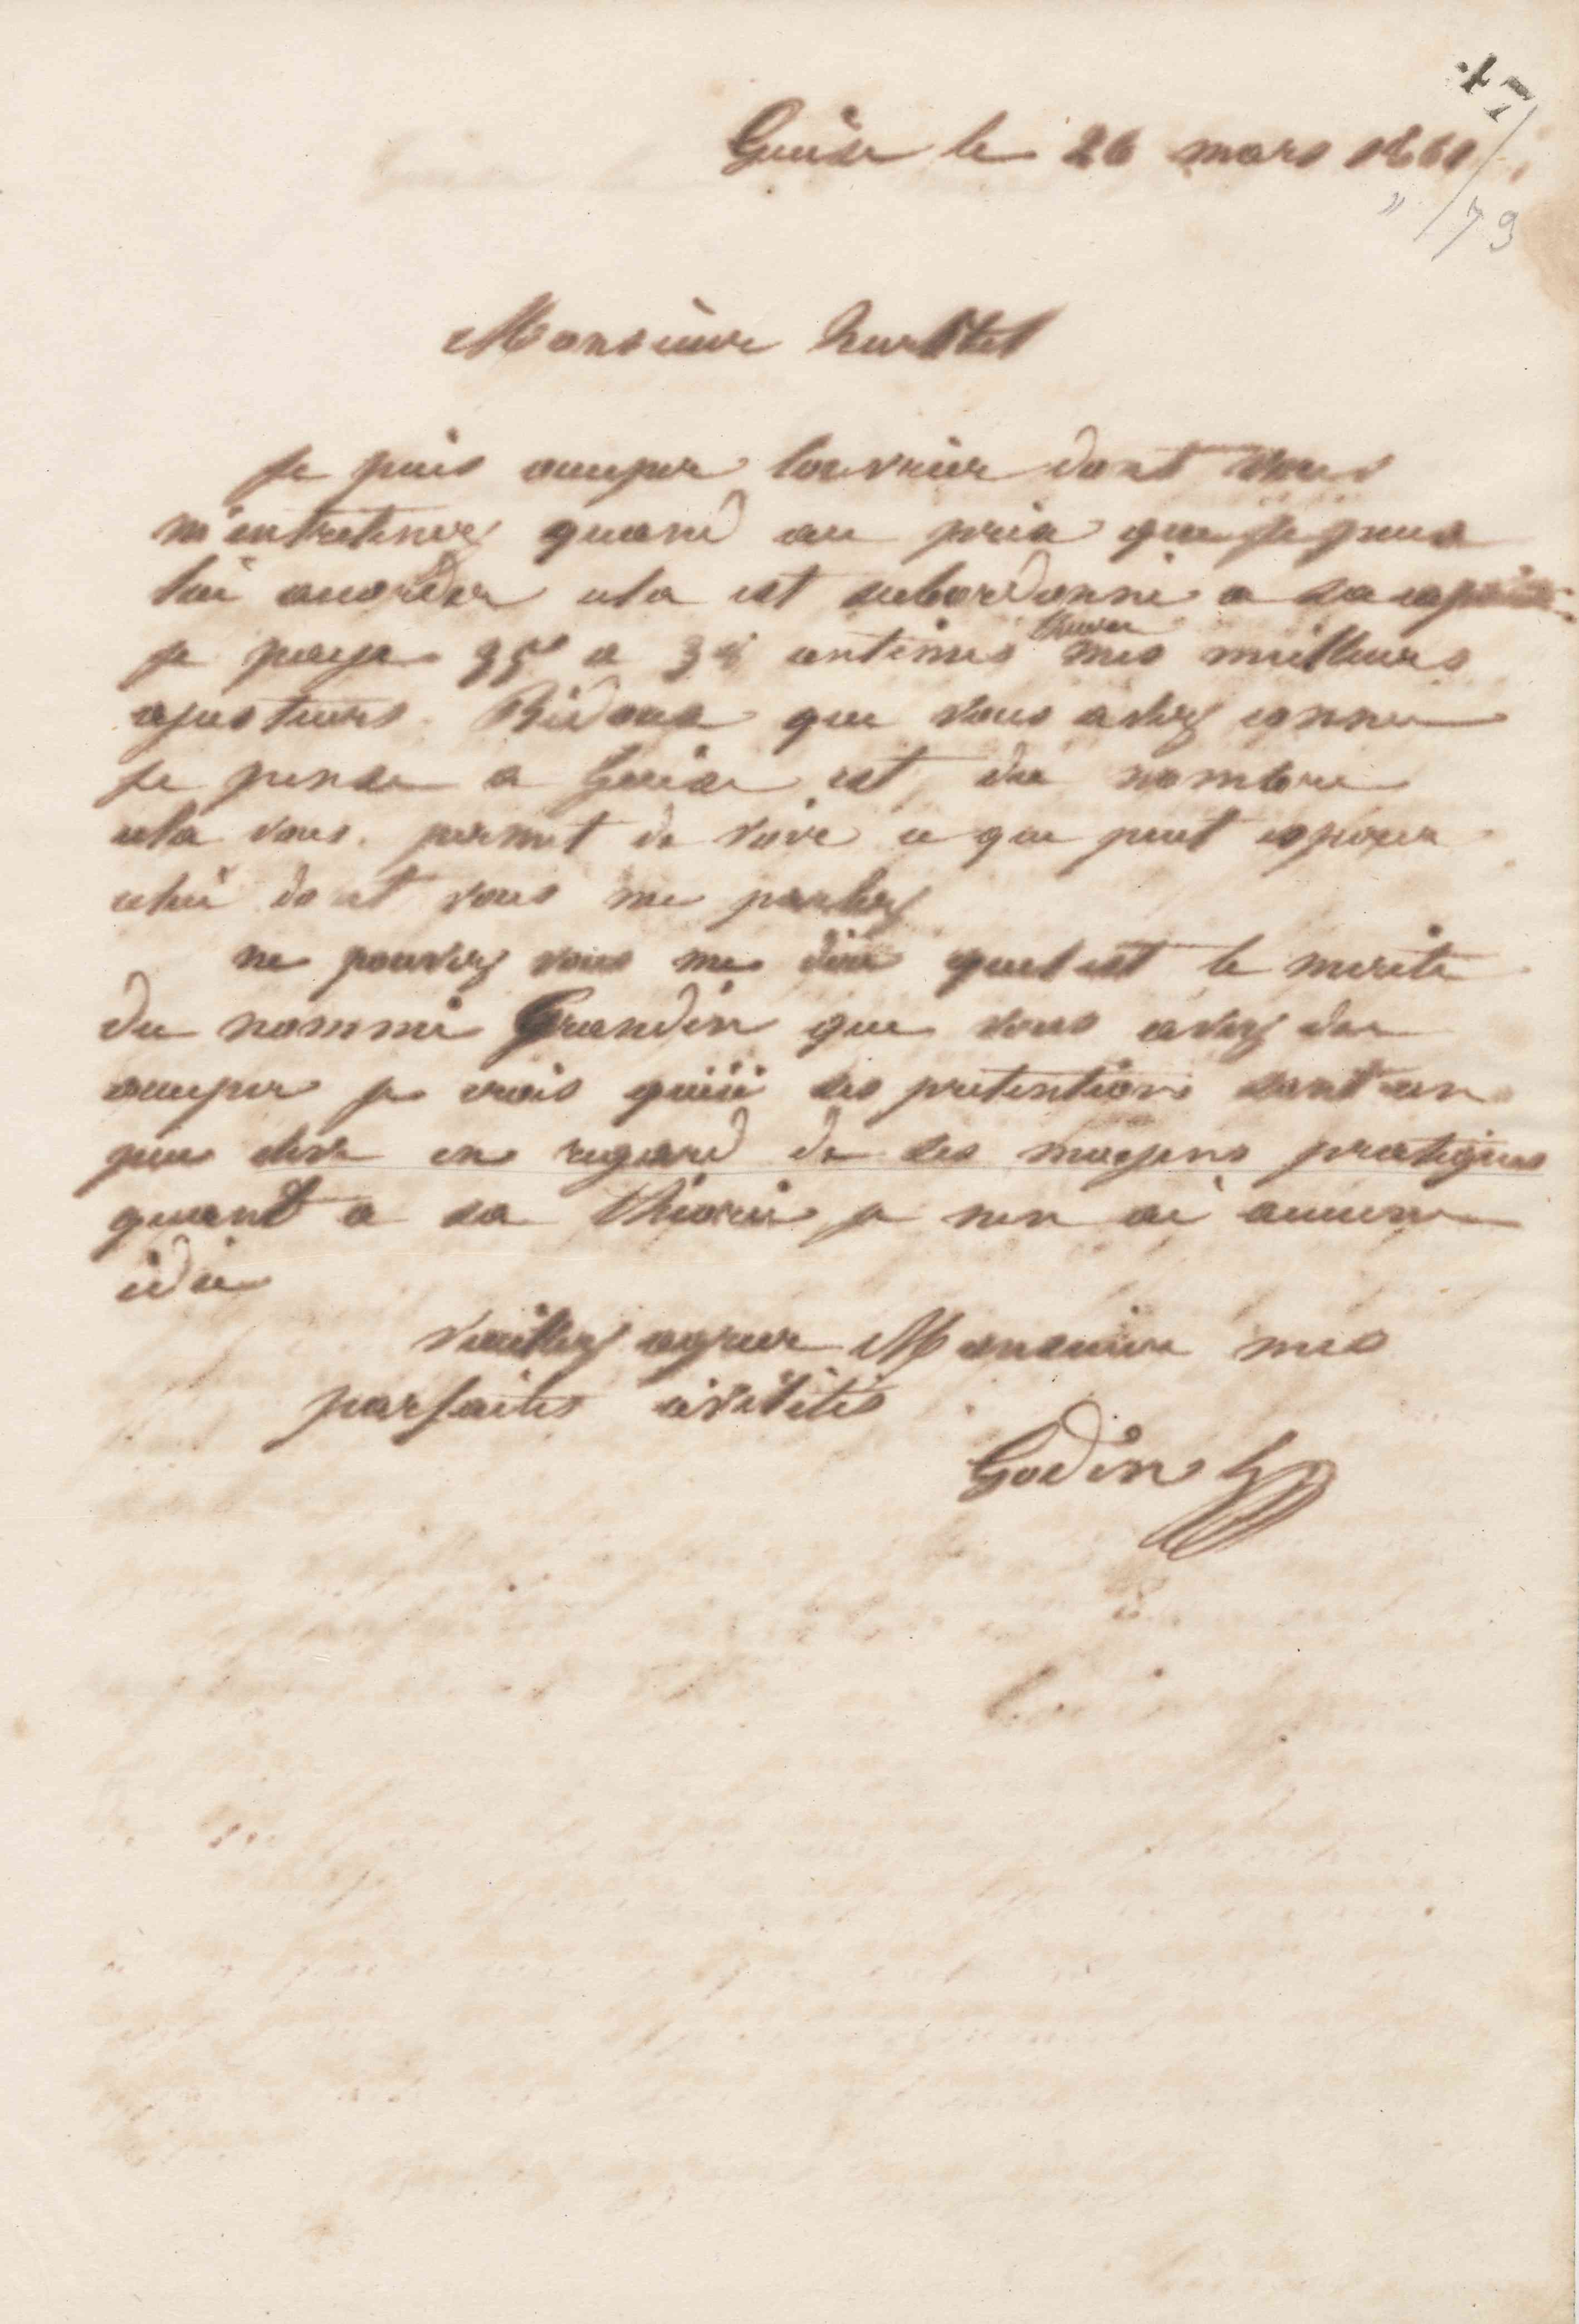 47
Guise le 26 mars 1861
" 79
Monsieur
je puis occuper louvrier dont vous
m'entretenez quand au prix que je peux
lui accorder cela est subordonné a sa
je paye 35 a 38 centimes l'heure mes meilleurs
ajusteurs. Bidoux que vous avez connu
je pense a Guise est du nombre
cela vous permet de voir ce que peut esperer
celui dont vous me parlez
ne pouvez vous me dire quel est le merite
du nommé Grandin que vous avez du
occuper je crois que ses pretentions sont un
peu elevé en regard de ses moyens pratiques
quant a sa théorie je nen ai aucune
idée
veuillez agreer Monsieur mes
parfaites civilités
Godin